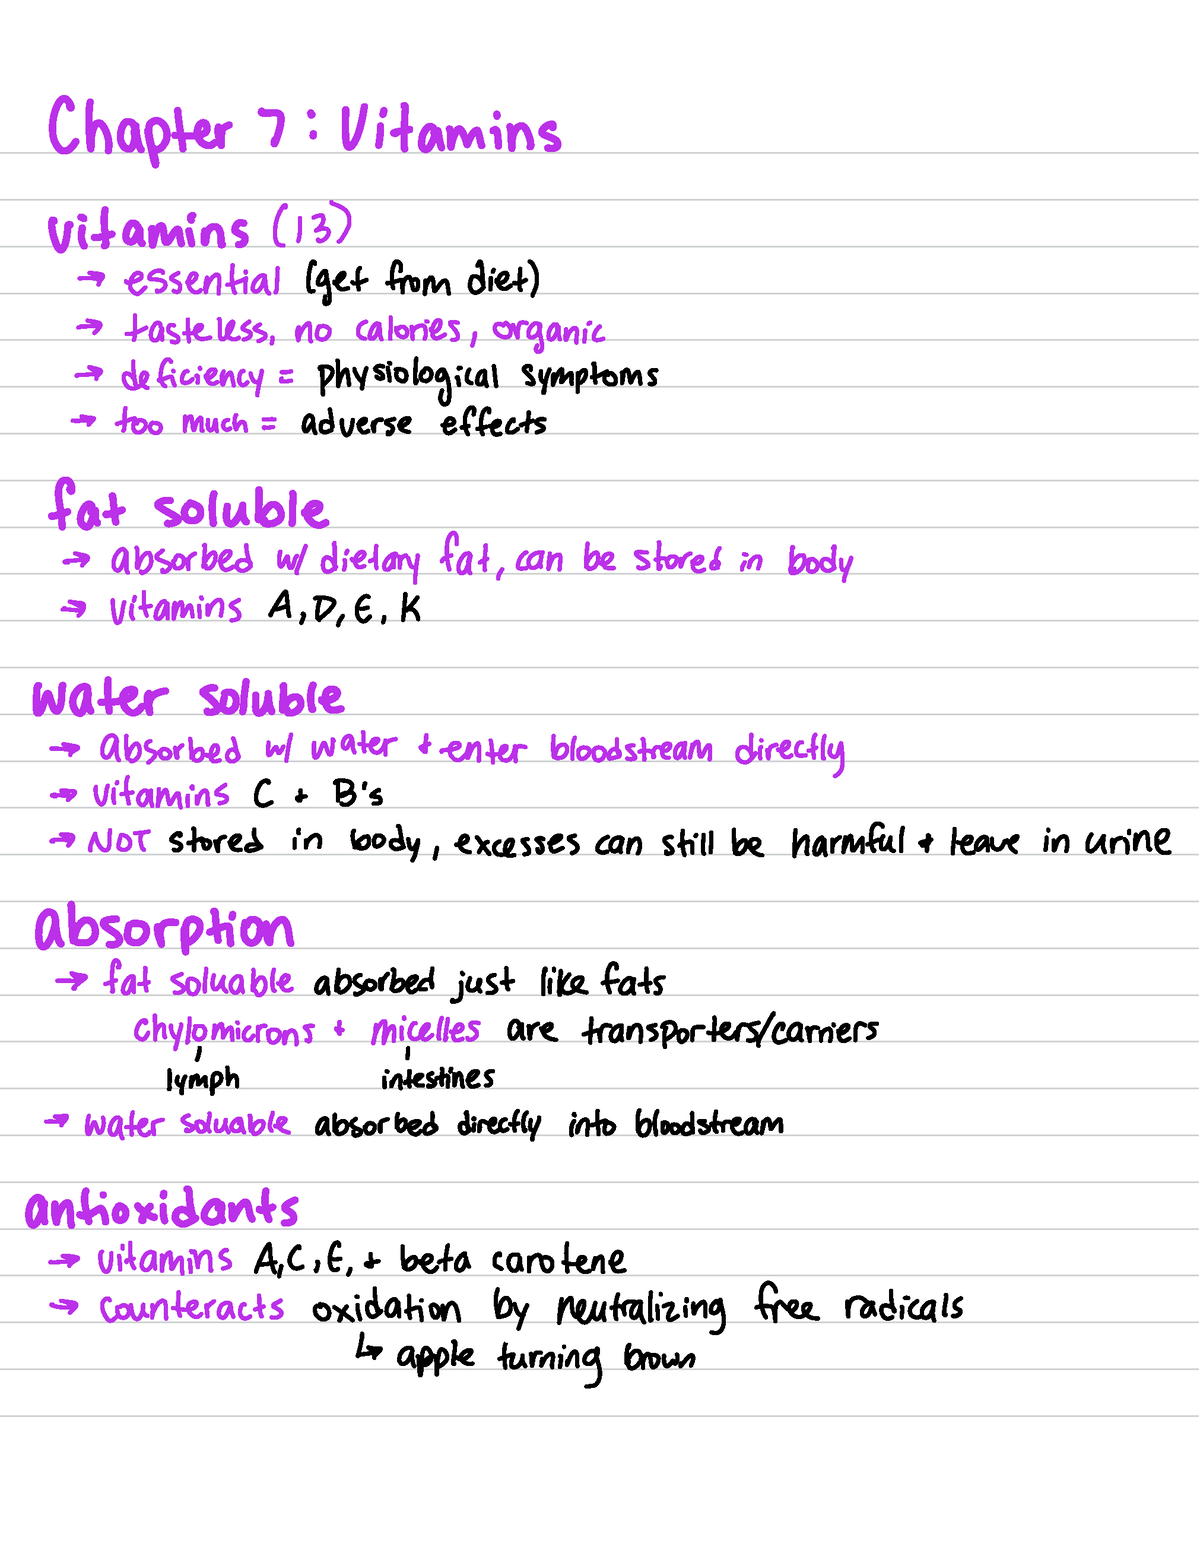 Chapter 7: Vitamins
vitamins (13)
→ essential (get from diet)
→ tasteless, no calories, organic
→ deficiency = physiological symptoms
→ too much = adverse effects
fat soluble
→ absorbed w/ dietary fat, can be stored in body
→ vitamins A, D, E, K
water soluble
→ absorbed w/ water + enter bloodstream directly
→ vitamins C + B's
→ NOT stored in body, excesses can still be harmful + leave in urine
absorption
→ fat soluable absorbed just like fats
chylomicrons + micelles are transporters/carriers
lymph intestines
→ water soluable absorbed directly into bloodstream
antioxidants
→ vitamins A, C, E, + beta carotene
→ counteracts oxidation by neutralizing free radicals
↳ apple turning brown